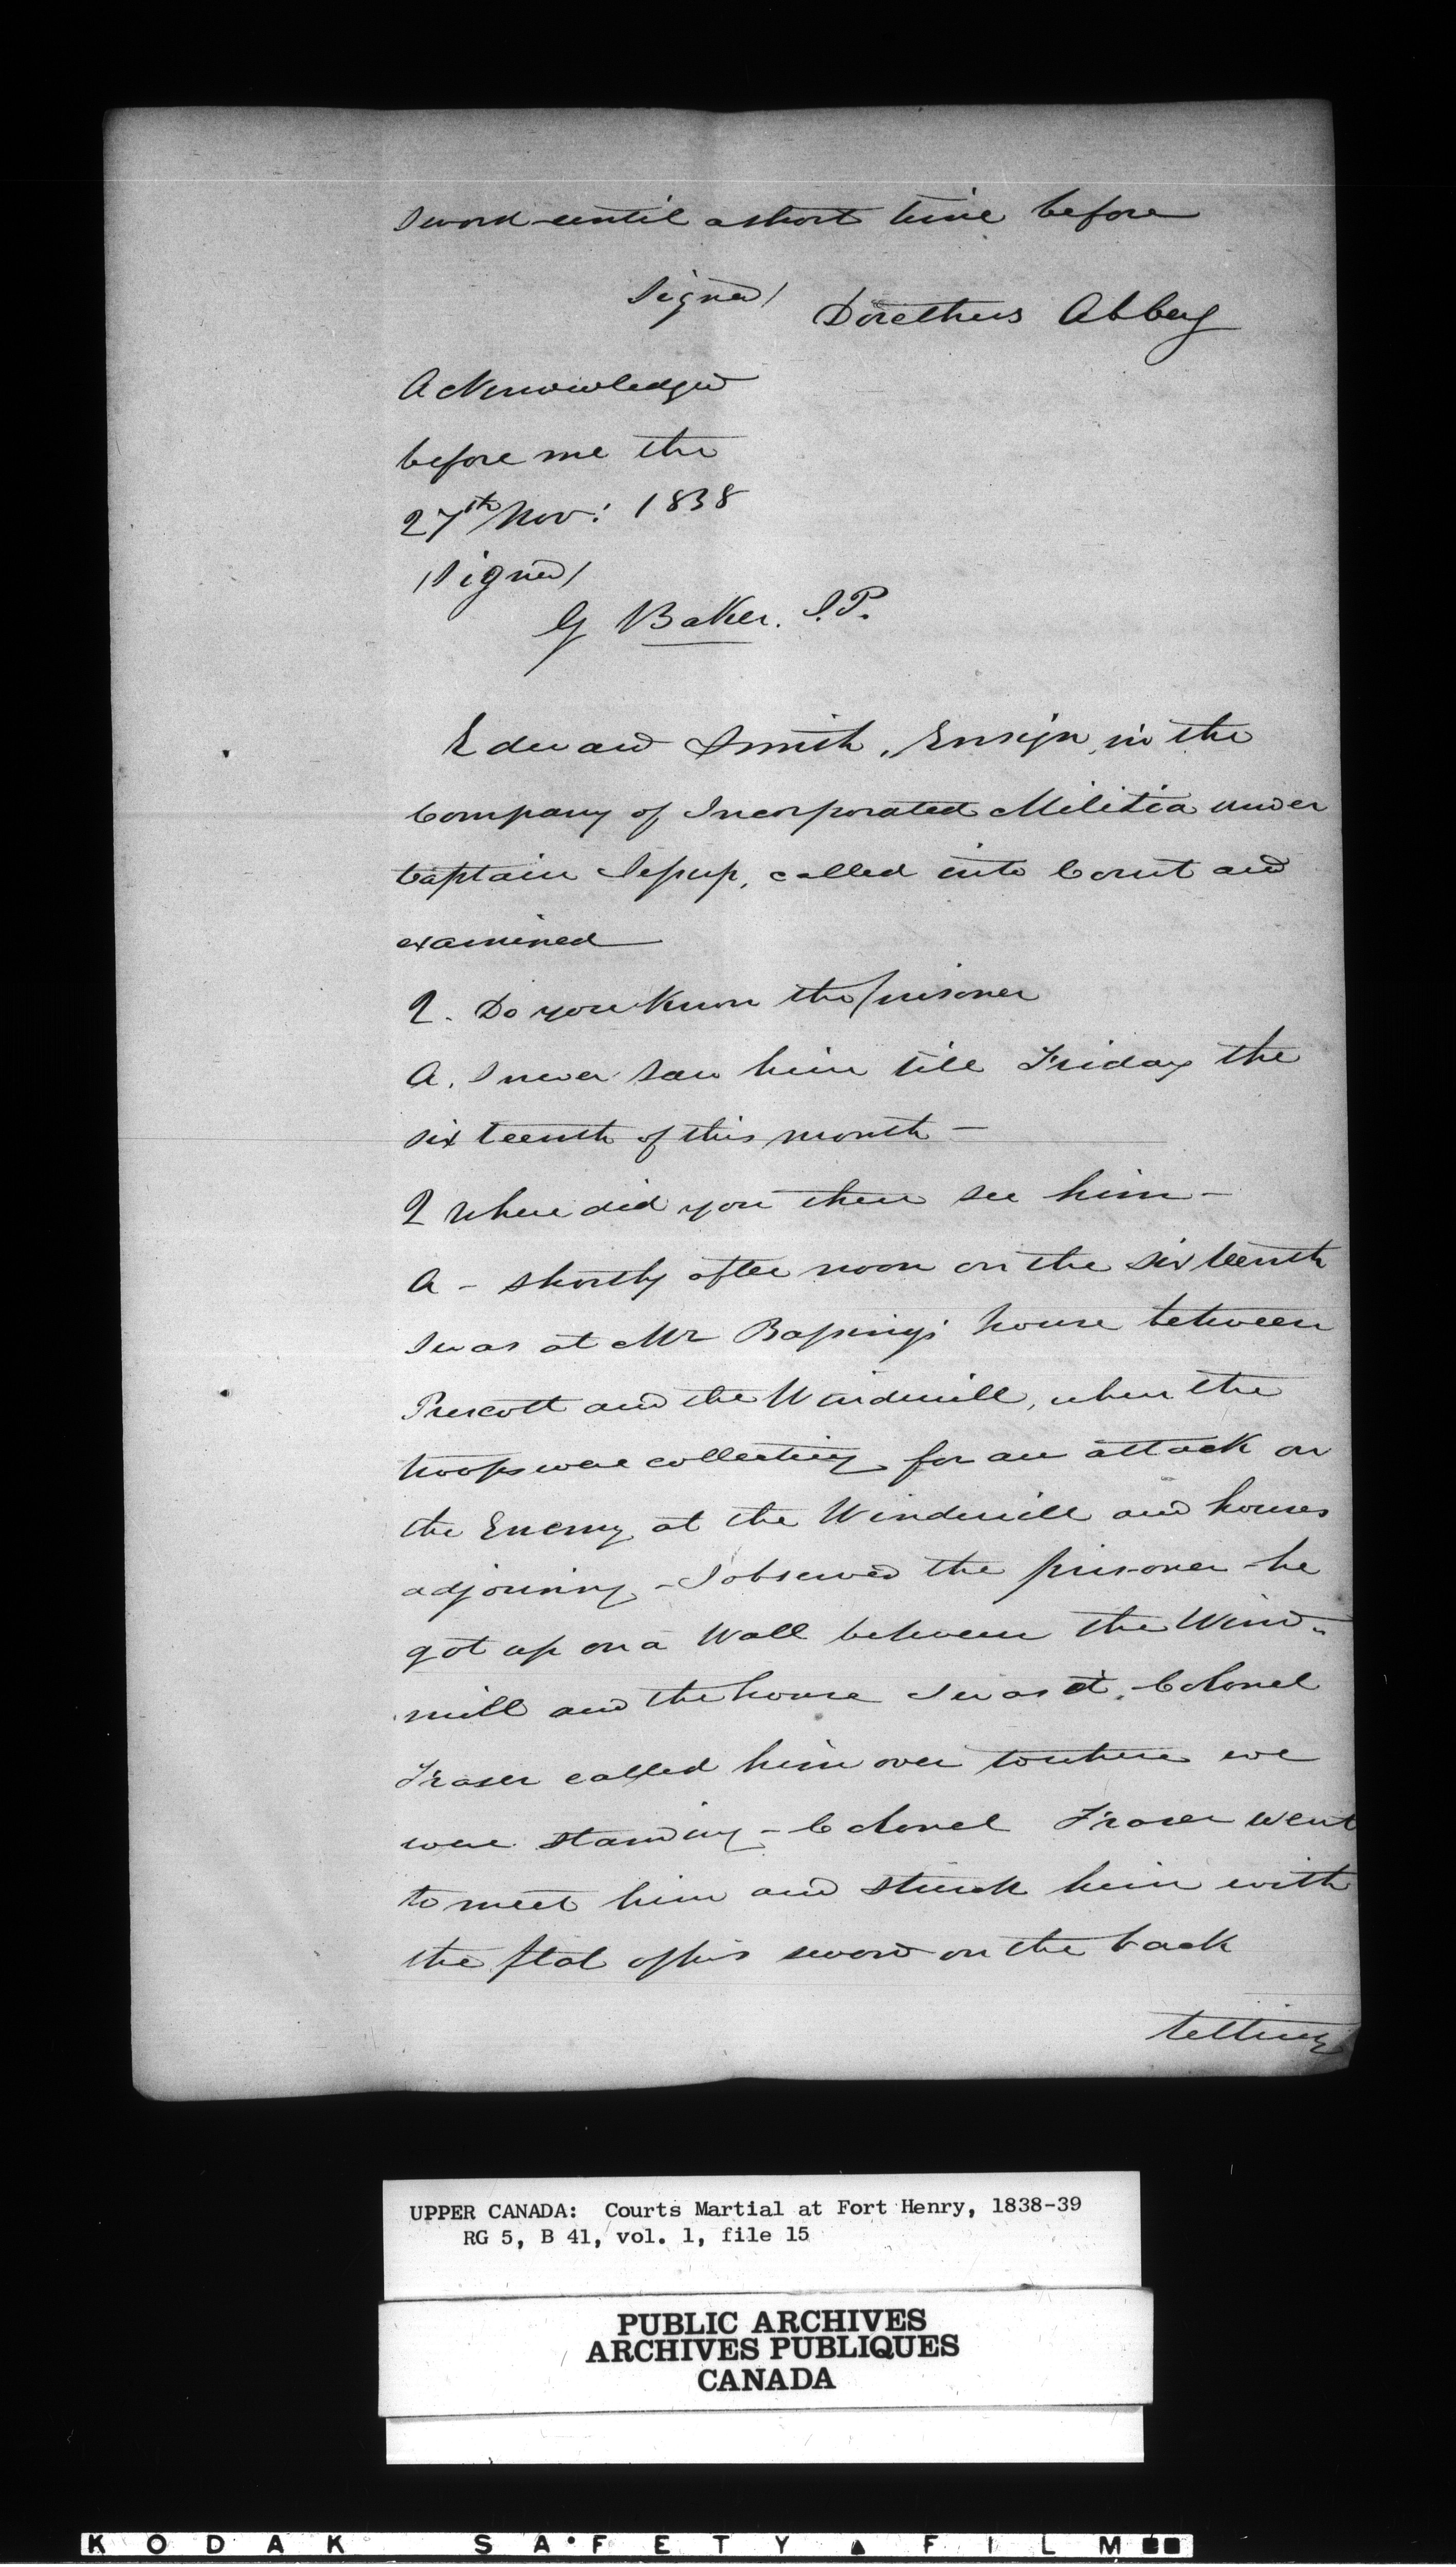 sword until a short time before
Signed / Dorethus Abbey
Acknowledged
before me the
27th Nov: 1838
/Signed/
G Baker. J.P.
Edward Smith, Ensign, in the
Company of Incorporated Militia under
Captain Jessup, called into Court and
examined
Q. Do you know the prisoner
A. I never saw him till Friday the
sixteenth of this month -
Q Where did you then see him -
A - Shortly after noon on the sixteenth
I was at Mr house between
Prescott and the Windmill, when the
troops were collecting for an attack on
the Enemy at the Windmill and houses
adjoining - I observed the prisoner - he
got up on a Wall between the Wind-
mill and the house I was at. Colonel
Fraser called him over to where we
were standing - Colonel Fraser went
to meet him and struck him with
the flat of his sword on the back
telling
UPPER CANADA: Courts Martial at Fort Henry, 1838-39
RG 5, B 41, vol. 1, file 15
PUBLIC ARCHIVES
ARCHIVES PUBLIQUES
CANADA
KODAK SAFETY FILM